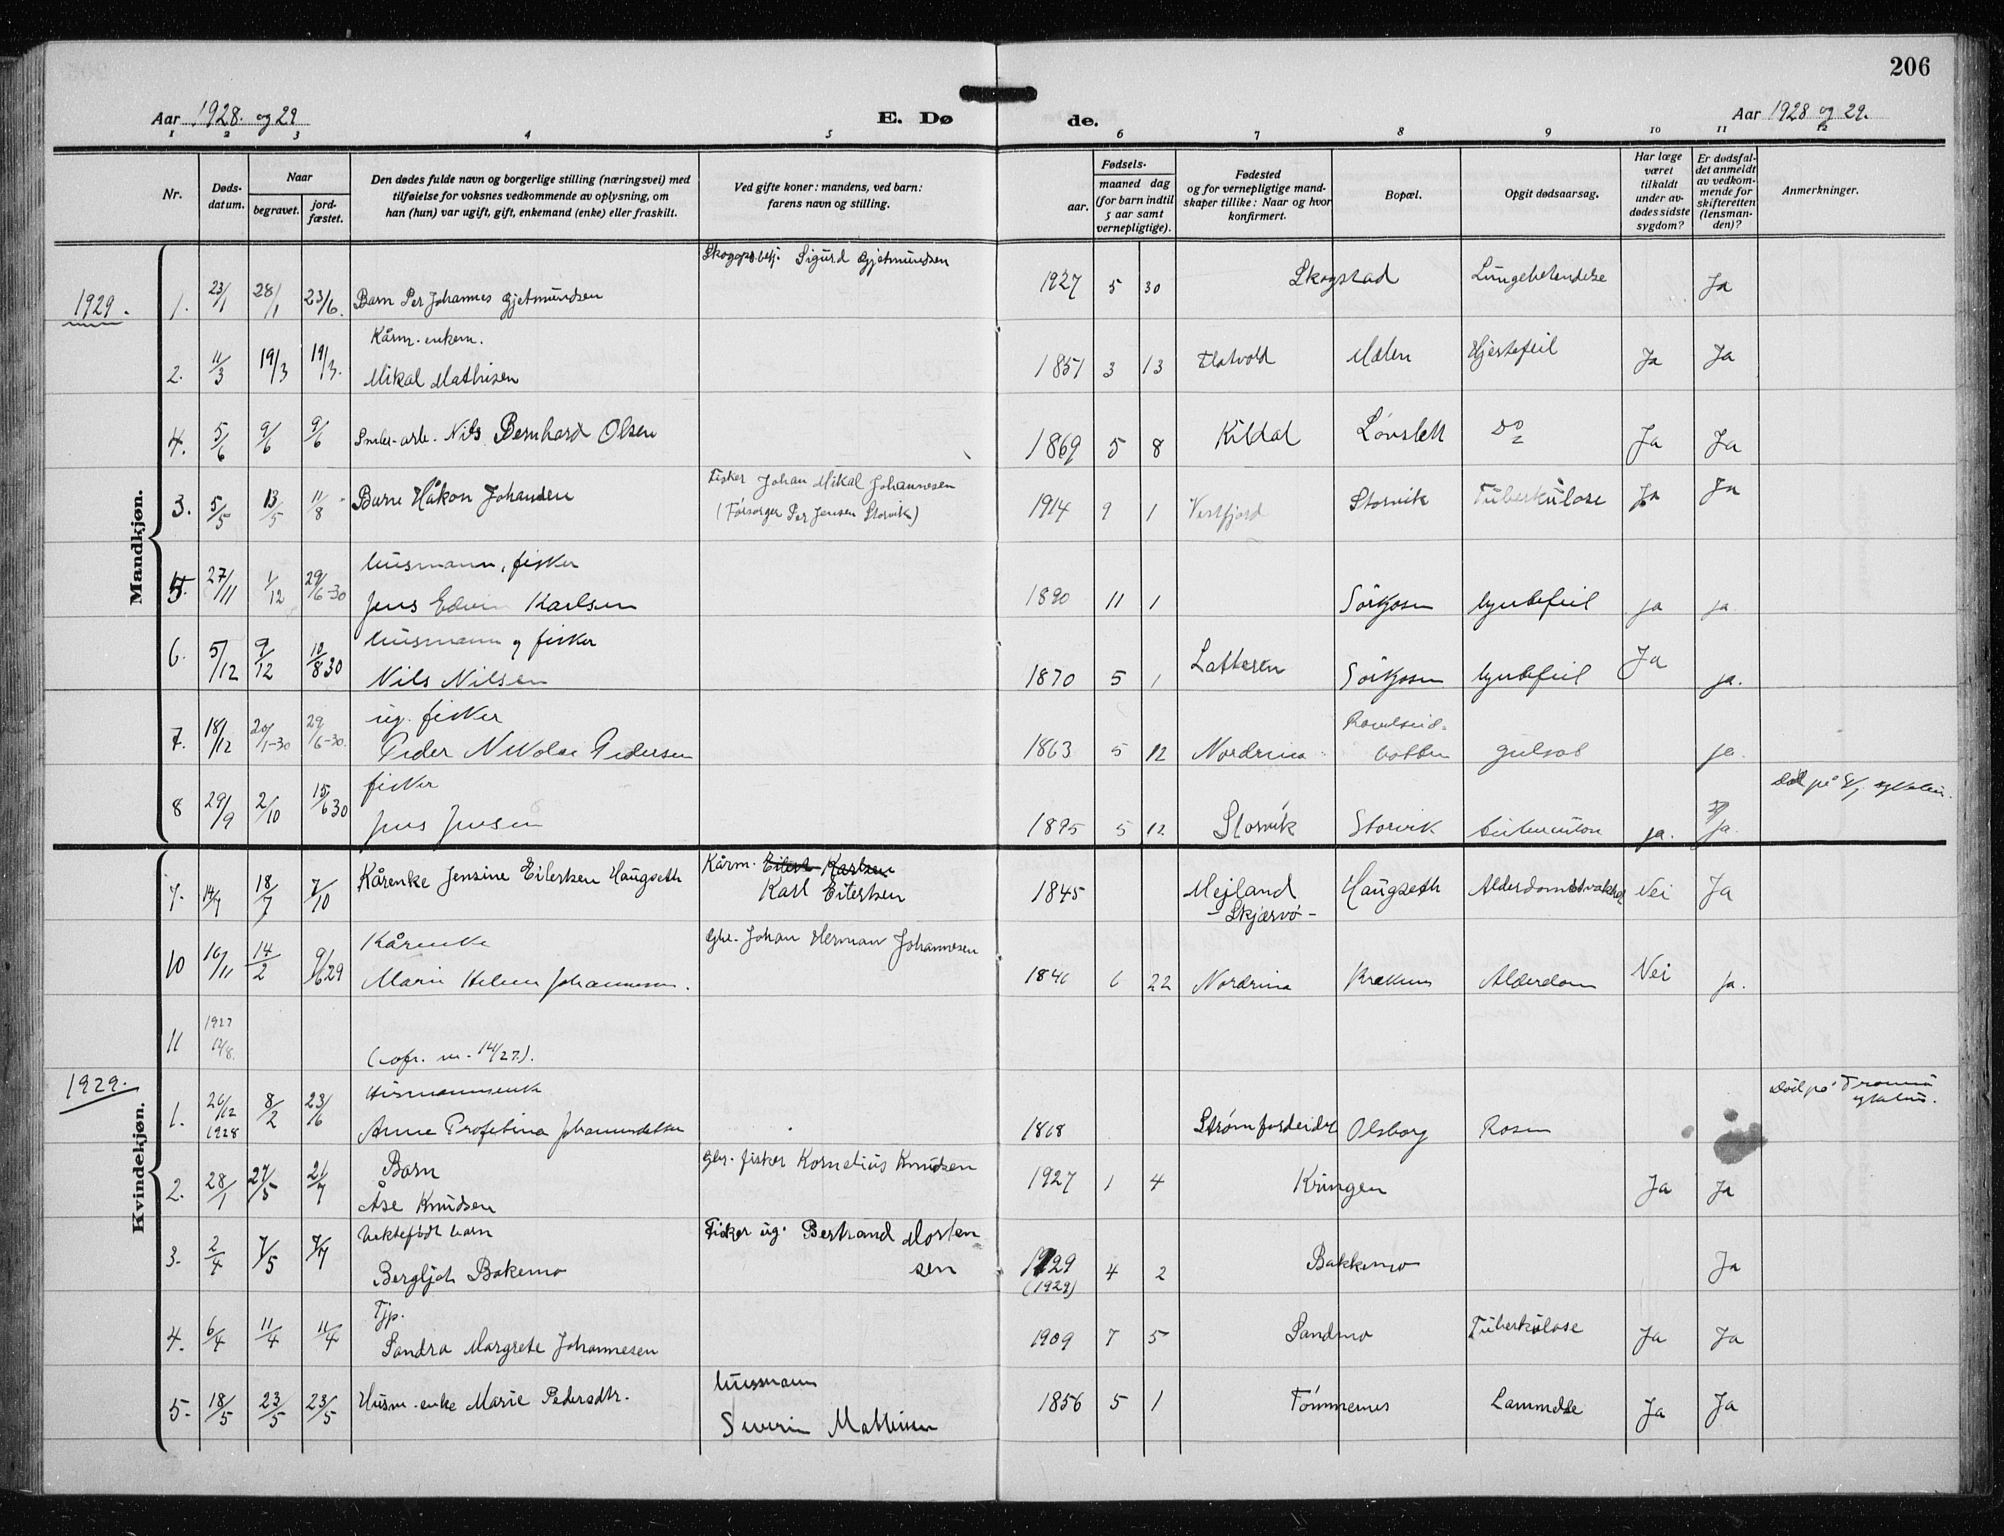 206
Aar 1928. og 29
E. Dø de.
Aar 1928 og 29.
1 2 3 4 5 6 7 8 9 10 11 12
Nr.
Døds-
datum.
Naar
begravet.
jord-
fæstet.
Den dødes fulde navn og borgerlige stilling (næringsvei) med
tilføielse for voksnes vedkommende av oplysning, om
han (hun) var ugift, gift, enkemand (enke) eller fraskilt.
Ved gifte koner: mandens, ved barn:
farens navn og stilling.
Fødsels-
aar.
maaned dag
(for barn indtil
5 aar samt
vernepligtige).
Fødested
og for vernepligtige mand-
skaper tillike: Naar og hvor
konfirmert.
Bopæl.
Opgit dødsaarsag.
Har læge
været
tilkaldt
under av-
dødes sidste
sygdom?
Er dødsfal-
det anmeldt
av vedkom-
mende for
skifteretten
(lensman-
den)?
Anmerkninger.
Mandkjøn.
1929.
Sigurd Gjetmundsen
1. 23/1 28/1 23/6. Barn Per Johannes Gjetmundsen 1927 5 30 Skogstad Lungebetendelse Ja
Kårm. enkem.
2. 11/3 19/3 19/3. Mikal Mathisen 1851 3 13 Flatvold Mælen Hjertefeil Ja Ja
4. 5/6 9/6 9/6 Nils Bernhard Olsen 1869 5 8 Kildal Løvslett Do Ja Ja
3. 5/5 13/5 11/8 Barn Håkon Johansen Fisker Johan Mikal Johannesen
(Forsørger Per Jensen Storvik) 1914 9 1 Storvik Tuberkulose Ja Ja
husmann, fisker
5. 27/11 1/12 29/6-30 Jens Edvin Karlsen 1890 11 1 Sørkjosen hjertefeil ja ja.
husmann og fisker
6. 5/12 9/12 10/8 30 Nils Nilsen 1870 5 1 Sørkjosen hjertefeil Ja ja.
ug. fisker
7. 18/12 20/1-30 29/6-30. Peder Nikolai Pedersen 1863 5 12 Nordreisa botten gulsot ja.
fisker
8 29/9 2/10 15/6 30 Jens Jensen 1895 5 12 Storvik Storvik tuberculose ja. Ja.
Kvindekjøn.
7. 14/7 18/7 7/10 Kårenke Jensine Eilertsen Haugseth Kårm. Eilert Karlsen
Karl Eilertsen 1845 Mejland
- Skjærvø - Haugseth Nei Ja
Kårenke Gbr. Johan Herman Johannesen
10 16/11 14/2 9/6 29 Marie Helene Johannesen. 1846 6 22 Nordreisa Alderdom Nei ja.
11 1927
(cfr. nr. 14/27).
1929.
Husmannsenke
1. 26/12 1928 8/2 23/6 Anne 1868 Olsborg Rosen
Død på Tromsø
sykehus.
Barn Gbr. fisker Kornelius Knudsen
2. 28/1 27/5 21/7 Åse Knudsen 1927 1 4 Kringen Ja Ja
barn Fisker ug. Bertrand Morten
sen
3. 2/4 7/5 7/7 Bergljot Bakkemo 1929
(1929) 4 2 Bakkemo Ja
Tjp.
4. 6/4 11/4 11/4 Sandra Margrete Johannesen 1909 7 5 Sandmo Tuberkulose Ja Ja
husmann
5. 18/5 23/5 23/5 Husm. enke Marie Pedersdtr. Severin Mathisen 1856 5 1 Tømmernes Lammelse Ja Ja